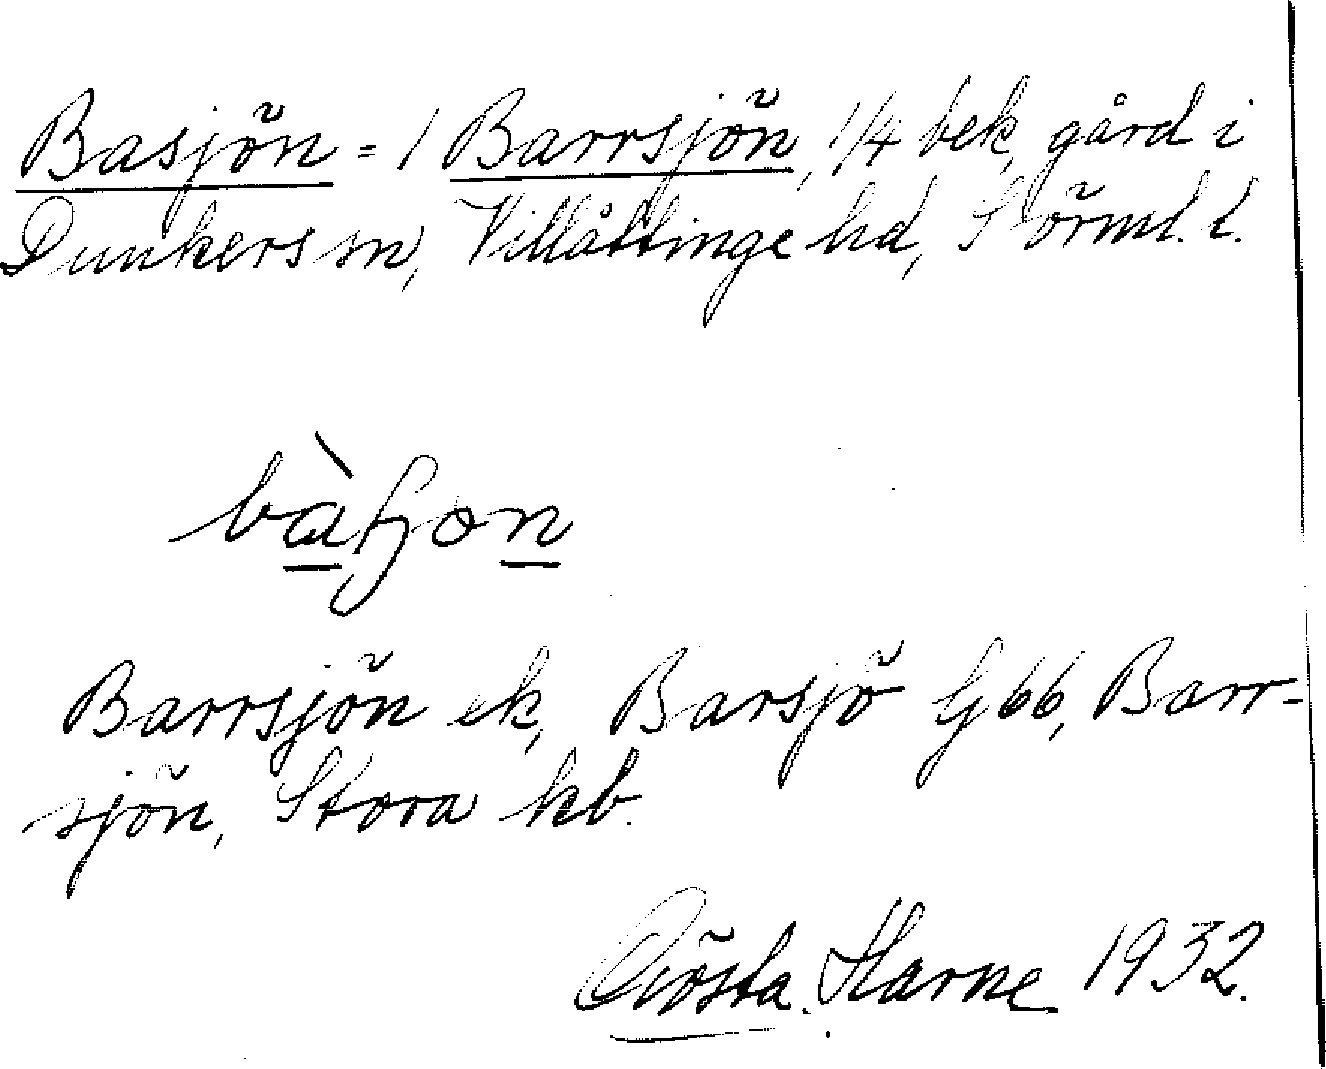 Basjön = 1 Barrsjön, 1/4 bek, gård i
Dunkers sn, Villåttinge hd, Sörml. l.
Barrsjön ek, Barsjö G 66, Barr-
sjön, Stora kb.
Gösta Harne 1932.